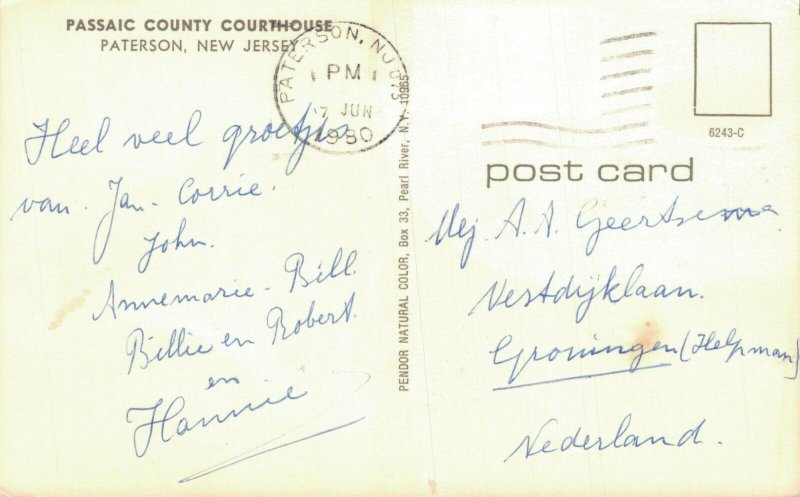 PASSAIC COUNTY COURTHOUSE
PATERSON, NEW JERSEY
PATERSON, NJ 075
PM
7 JUN
1980
Heel veel groetjes
van. Jan- Corrie.
John.
Annemarie- Bill.
Billie en Robert.
en
Hannie
PENDOR NATURAL COLOR, Box 33, Pearl River, N.Y. 10965
6243-C
post card
Mej. A. A. Geertsema
Vestdijklaan.
Groningen (Helpman)
Nederland.